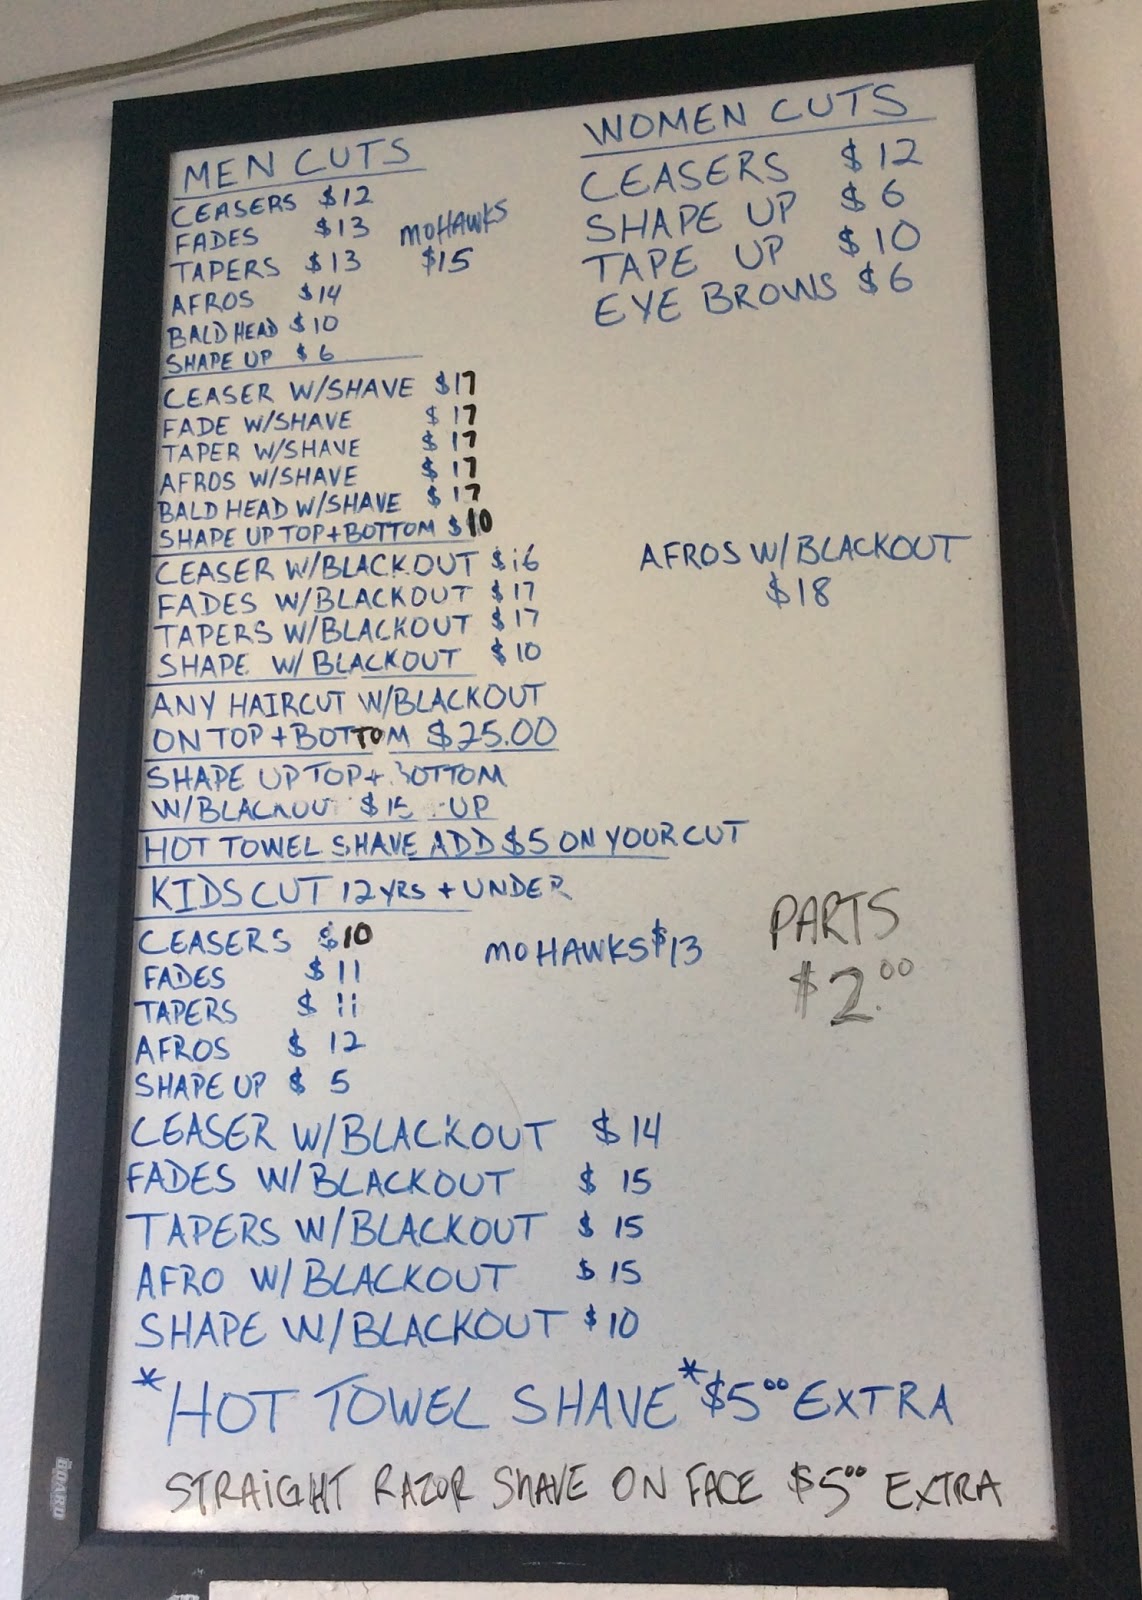 MEN CUTS
CEASERS $12
FADES $13
TAPERS $13
AFROS $14
BALD HEAD $10
SHAPE UP $6
MOHAWKS
$15
WOMEN CUTS
CEASERS $12
SHAPE UP $6
TAPE UP $10
EYE BROWS $6
CEASER W/SHAVE $17
FADE W/SHAVE $17
TAPER W/SHAVE $17
AFROS W/SHAVE $17
BALD HEAD W/SHAVE $17
SHAPE UP TOP+BOTTOM $10
CEASER W/BLACKOUT $16
FADES W/BLACKOUT $17
TAPERS W/BLACKOUT $17
SHAPE W/BLACKOUT $10
AFROS W/BLACKOUT
$18
ANY HAIRCUT W/BLACKOUT
ON TOP + BOTTOM $25.00
SHAPE UP TOP + BOTTOM
W/BLACKOUT $15 UP
HOT TOWEL SHAVE ADD $5 ON YOUR CUT
KIDS CUT 12 YRS + UNDER
CEASERS $10
FADES $11
TAPERS $11
AFROS $12
SHAPE UP $5
MOHAWKS $13
PARTS
$2.00
CEASER W/BLACKOUT $14
FADES W/BLACKOUT $15
TAPERS W/BLACKOUT $15
AFRO W/BLACKOUT $15
SHAPE W/BLACKOUT $10
*HOT TOWEL SHAVE* $5.00 EXTRA
STRAIGHT RAZOR SHAVE ON FACE $5.00 EXTRA